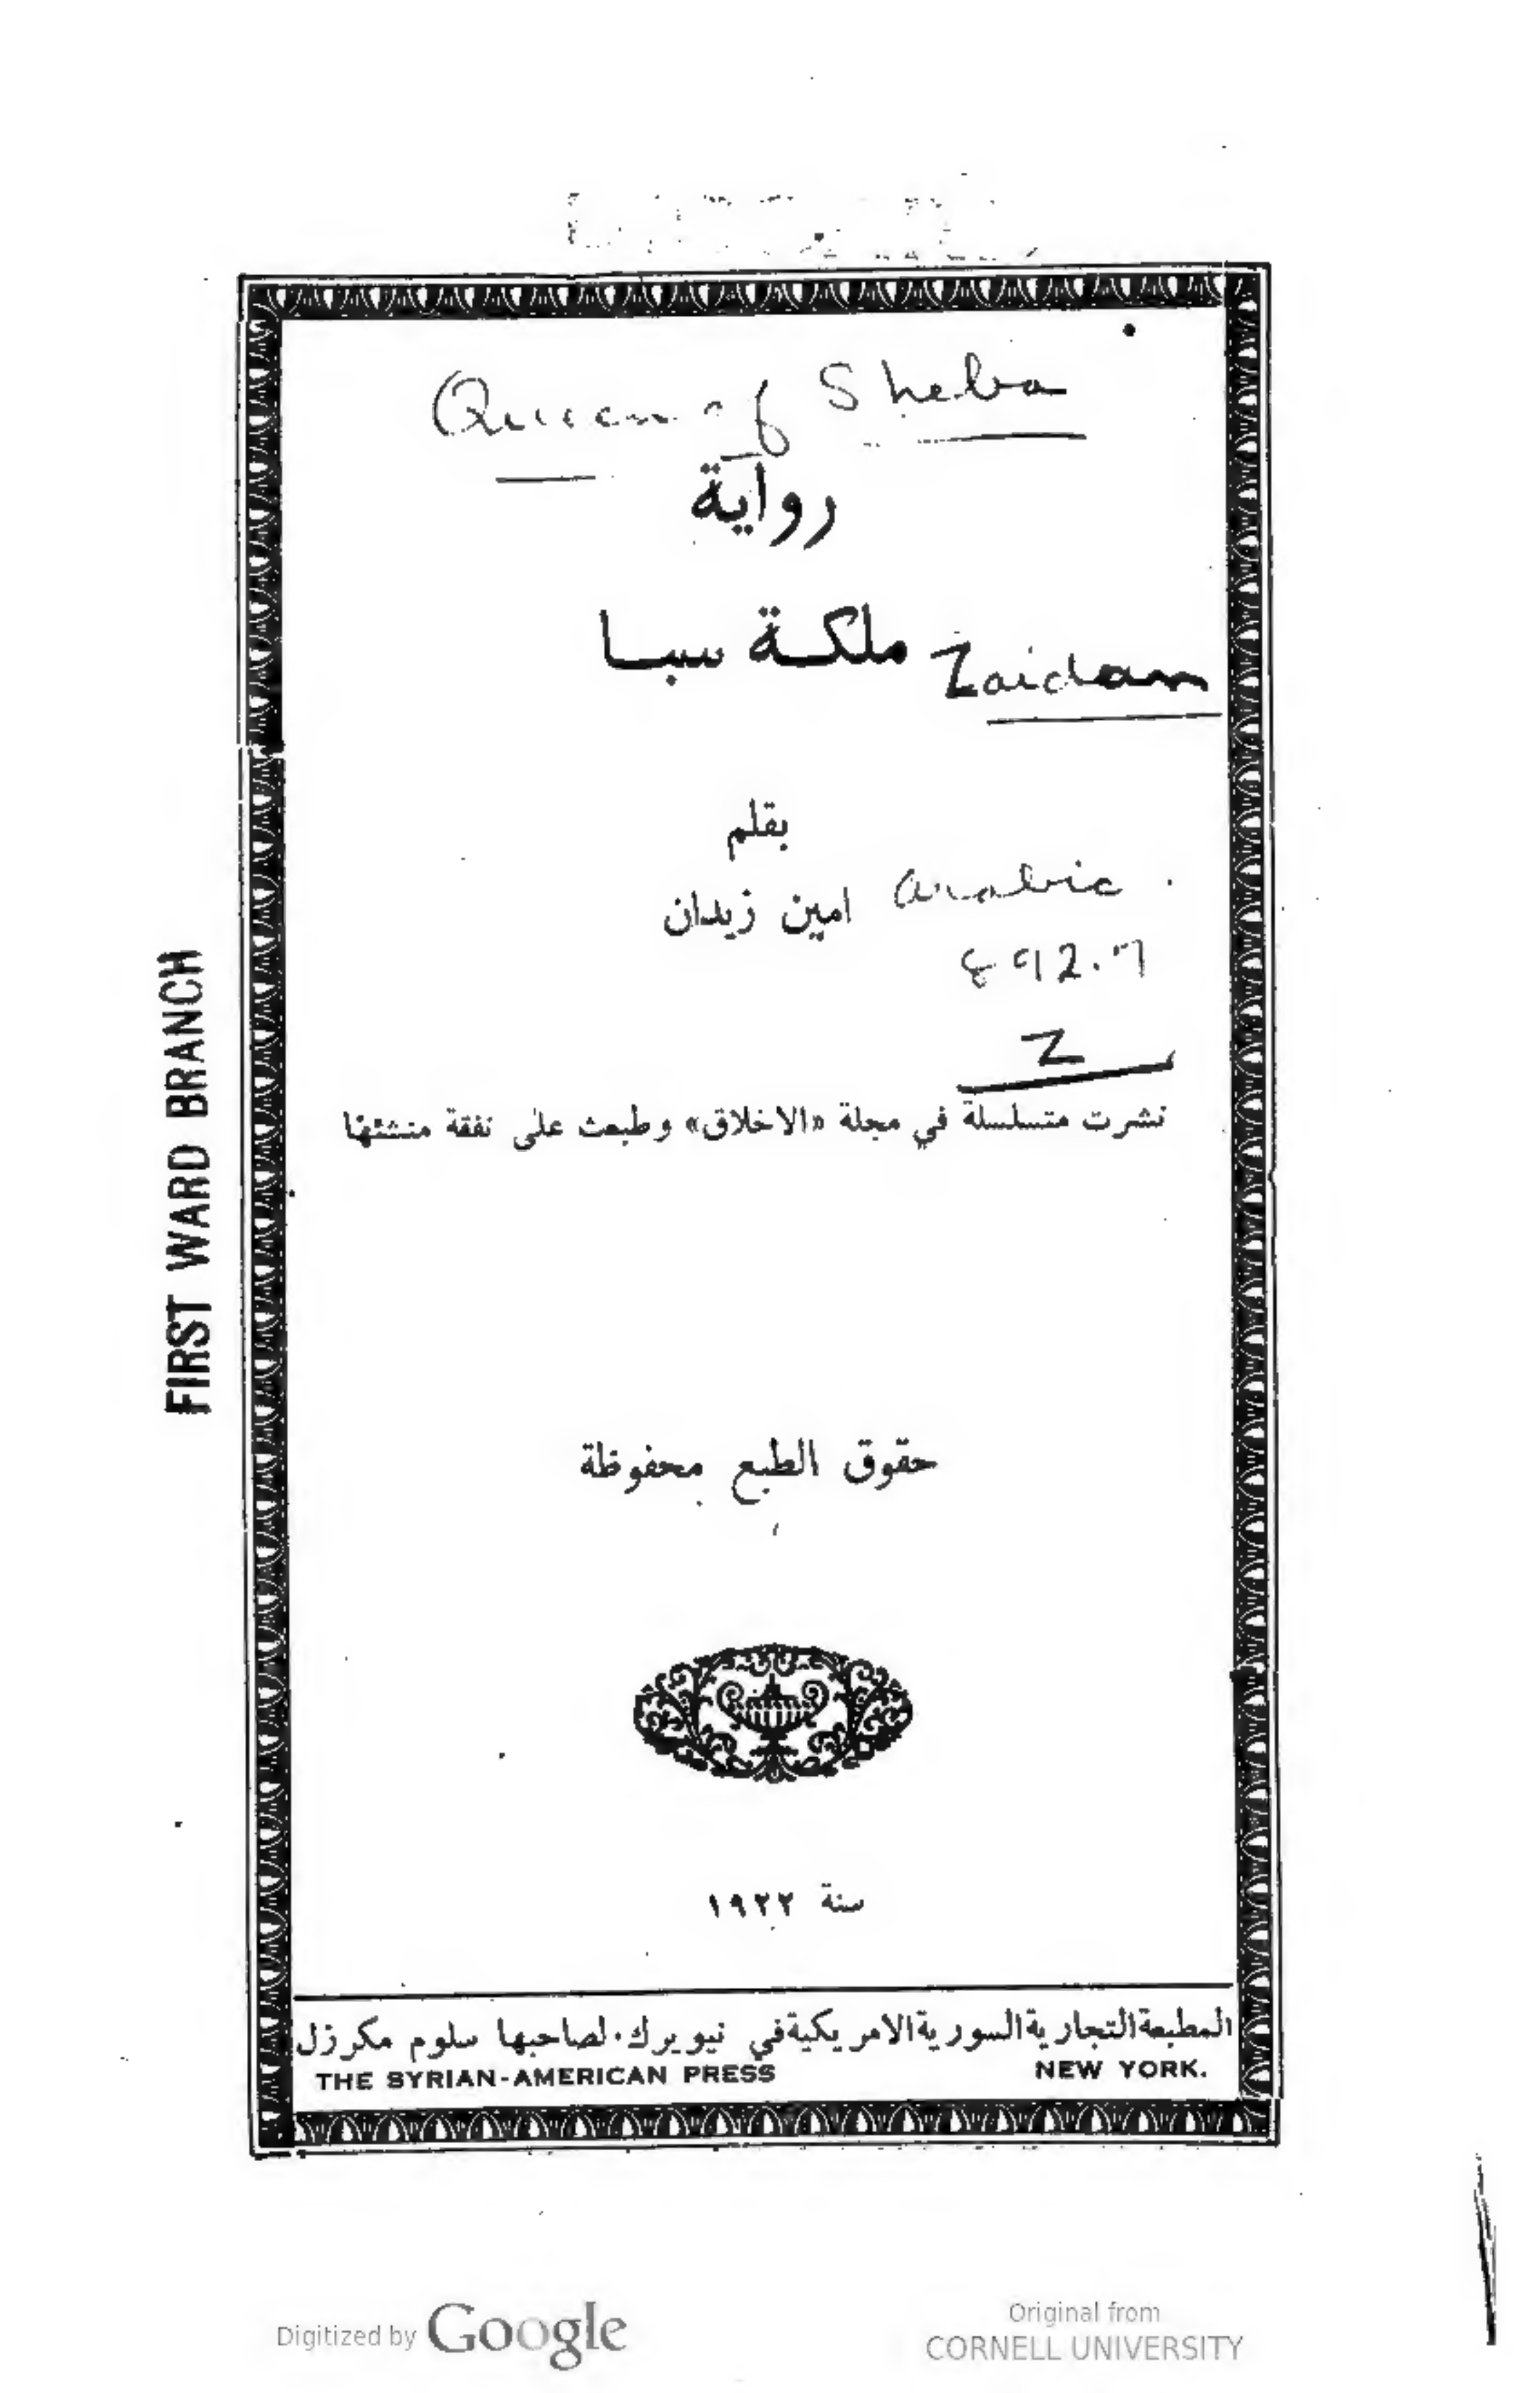 Queen of Sheba
رواية
ملكة سبا
Zaidan
بقلم
امين زيدان
Arabic
892.7
Z
نشرت متسلسلة في مجلة «الاخلاق» وطبعت على نفقة منشئها
FIRST WARD BRANCH
حقوق الطبع محفوظة
سنة ١٩٢٢
المطبعة التجارية السورية الامريكية في نيويرك. لصاحبها سلوم مكرزل
THE SYRIAN-AMERICAN PRESS NEW YORK.
Digitized by Google
Original from
CORNELL UNIVERSITY